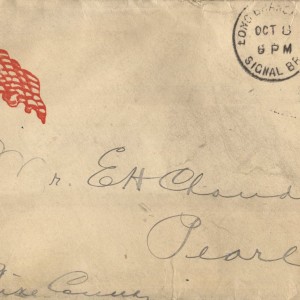 LONG BRANCH
OCT 8
9 PM
SIGNAL BR
Mr. E H Chand
Pearl
Pike County